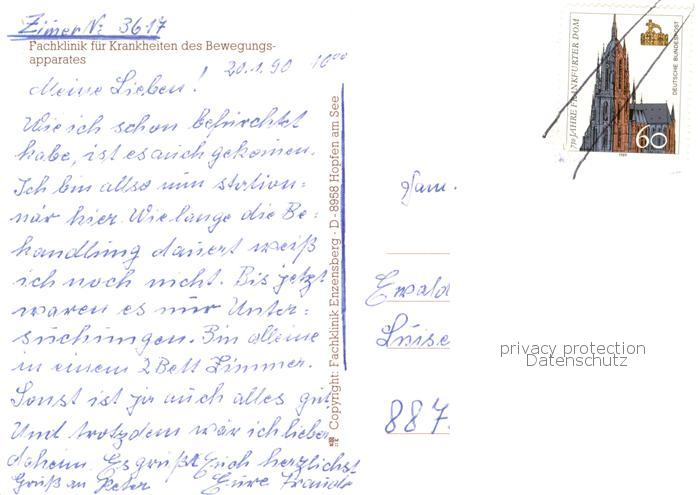 Zimer Nr 3617
Fachklinik für Krankheiten des Bewegungs-
apparates
20.1.90 10⁰⁰
Meine Lieben!
Wie ich schon befürchtet
habe, ist es auch gekomen.
Ich bin allso nun station=
när hier. Wie lange die Be=
handlung dauert weiß
ich noch nicht. Bis jetzt
waren es nur Unter=
suchungen. Bin alleine
in einem 2 Bett Zimmer.
Sonst ist ja auch alles gut
Und trotzdem wär ich lieber
daheim. Es grüßt Euch herzlichst
Gruß an Peter Eure Traudl
Copyright: Fachklinik Enzensberg · D-8958 Hopfen am See
750 JAHRE FRANKFURTER DOM
DEUTSCHE BUNDESPOST
60
1989
Fam.
Ewald
Luise
887
privacy protection
Datenschutz